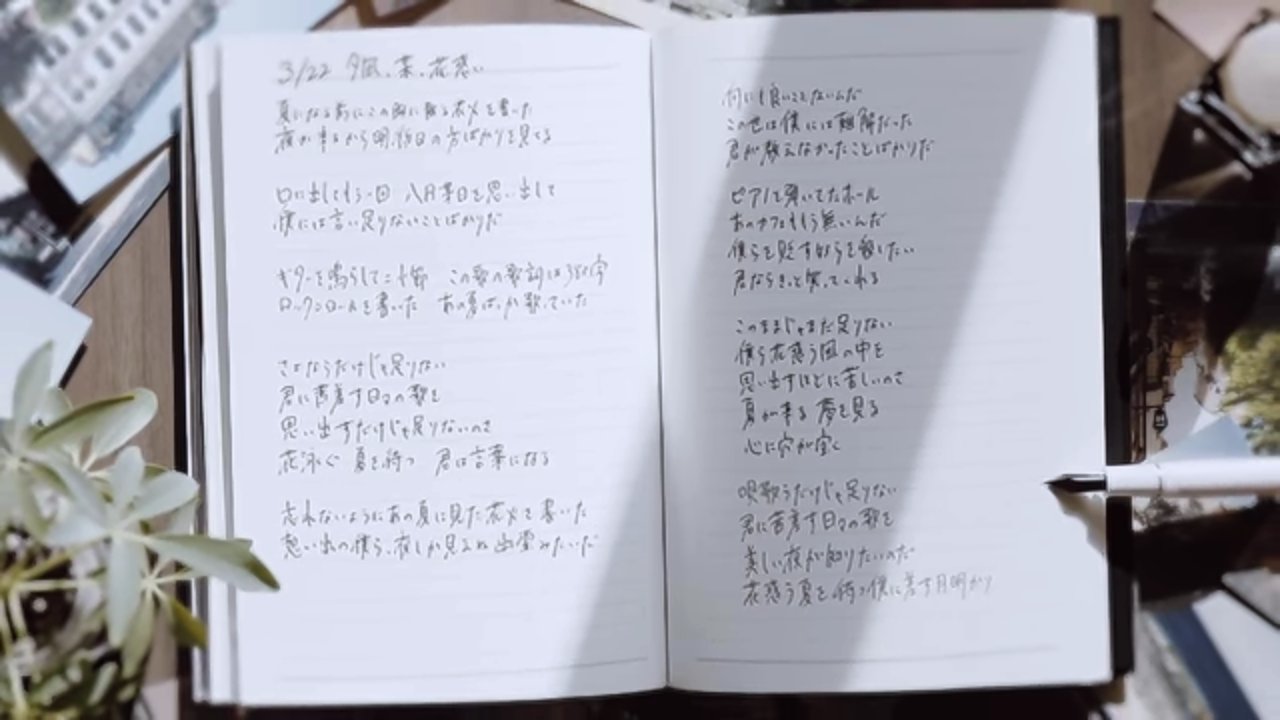 3/22 夕凪、某、花惑い
夏になる前にこの胸に散る花火を書いた
夜が来るから明後日の方ばかりを見てる
口に出してもう一回 八月某日を思い出して
僕には言い足りないことばかりだ
ギターを鳴らして二十節 この歌の歌詞は380字
ロックンロールを書いた あの夏ばっか歌っていた
さよならだけじゃ足りない
君に茜差す日々の歌を
思い出すだけじゃ足りないのさ
花泳ぐ 夏を待つ 君は言葉になる
忘れないようにあの夏に見た花火を書いた
思い出の僕ら、夜しか見えぬ幽霊みたいだ
何にも良いことないんだ
この世は僕には難解だった
君が教えなかったことばかりだ
ピアノを弾いてたホール
あのカフェももう無いんだ
僕らを貶す奴らを殺したい
君ならきっと笑ってくれる
このままじゃまだ足りない
僕ら花惑う風の中を
思い出すほどに苦しいのさ
夏が来る 夢を見る
心に穴が空く
唄歌うだけじゃ足りない
君に茜差す日々の歌を
美しい夜が知りたいのだ
花惑う夏を待つ僕に差す月明かり